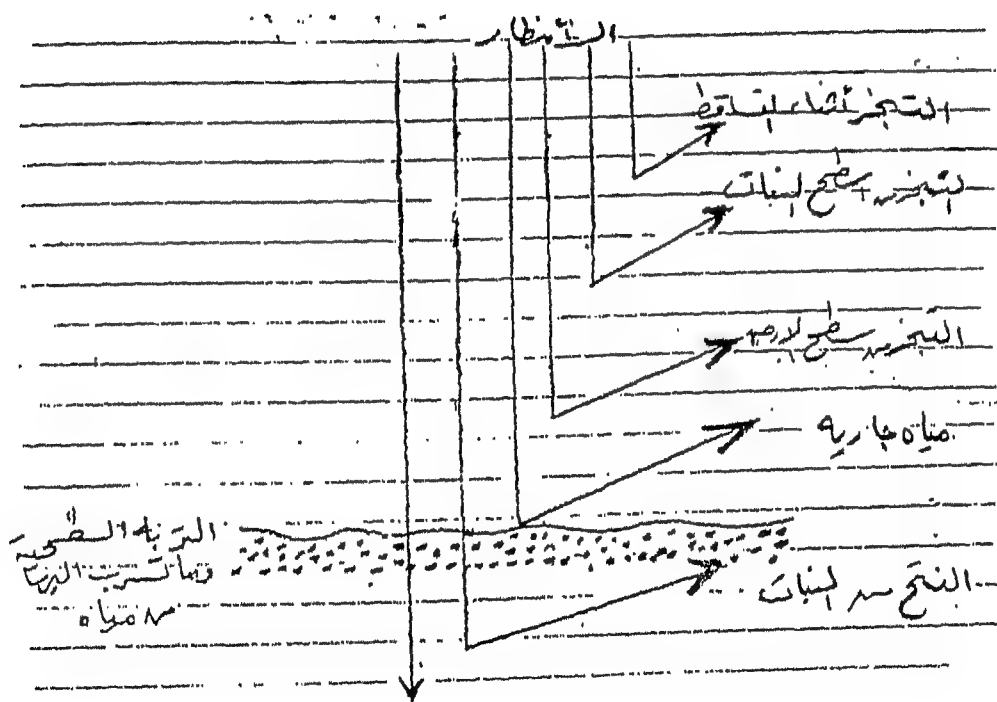 الأمطار
التبخر أثناء التساقط
التبخر من أسطح النبات
التبخر من سطح الارض
مياه جاريه
التربه السطحية
وما تسرب اليها
من مياه
النتح من النبات